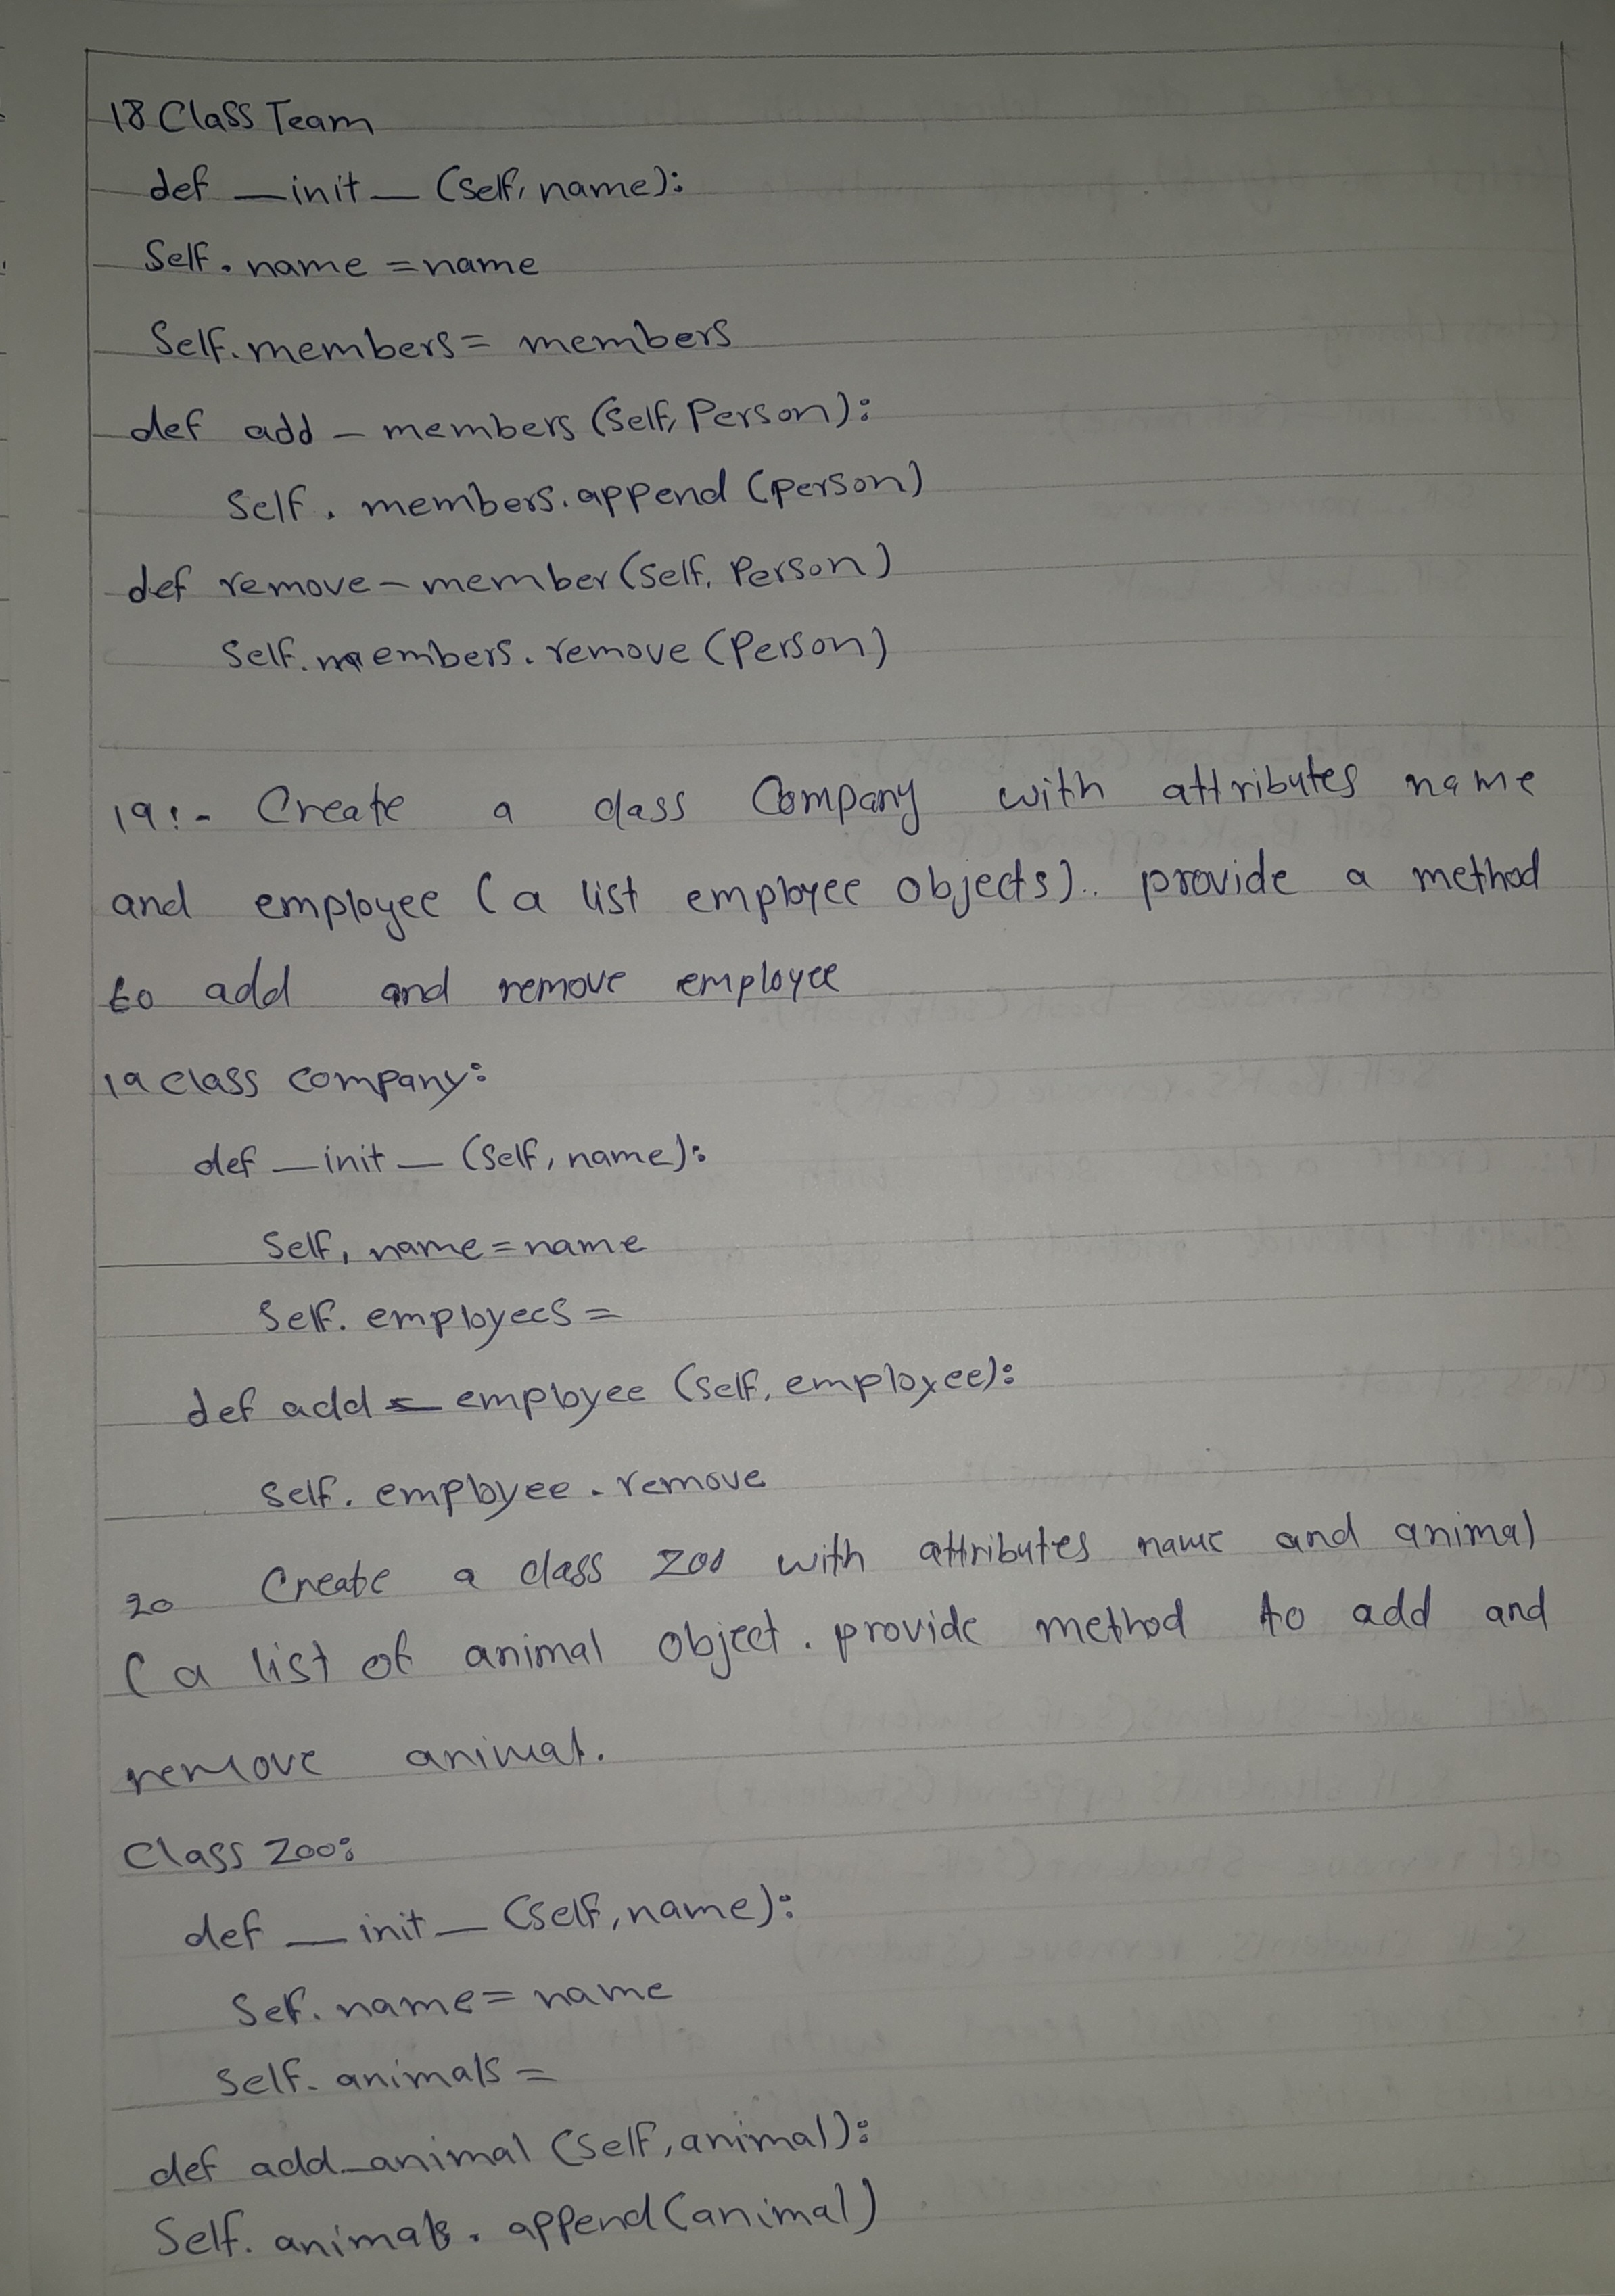 18 Class Team
def __init__ (Self, name):
Self. name = name
Self. members = members
def add - members (Self, Person):
Self. members. append (person)
def remove - member (Self, Person)
Self. members. remove (Person)
19:- Create a class Company with attributes name
and employee (a list employee objects).. provide a method
to add and remove employee
19 class company:
def __init__ (Self, name):
Self, name = name
Self. employees =
def add _ employee (Self, employee):
Self. employee . remove
20 Create a class Zoo with attributes name and animal
(a list of animal object . provide method to add and
remove animal.
Class Zoo:
def __init__ (Self, name):
Sef. name = name
Self. animals =
def add_animal (Self, animal):
Self. animals. append (animal)